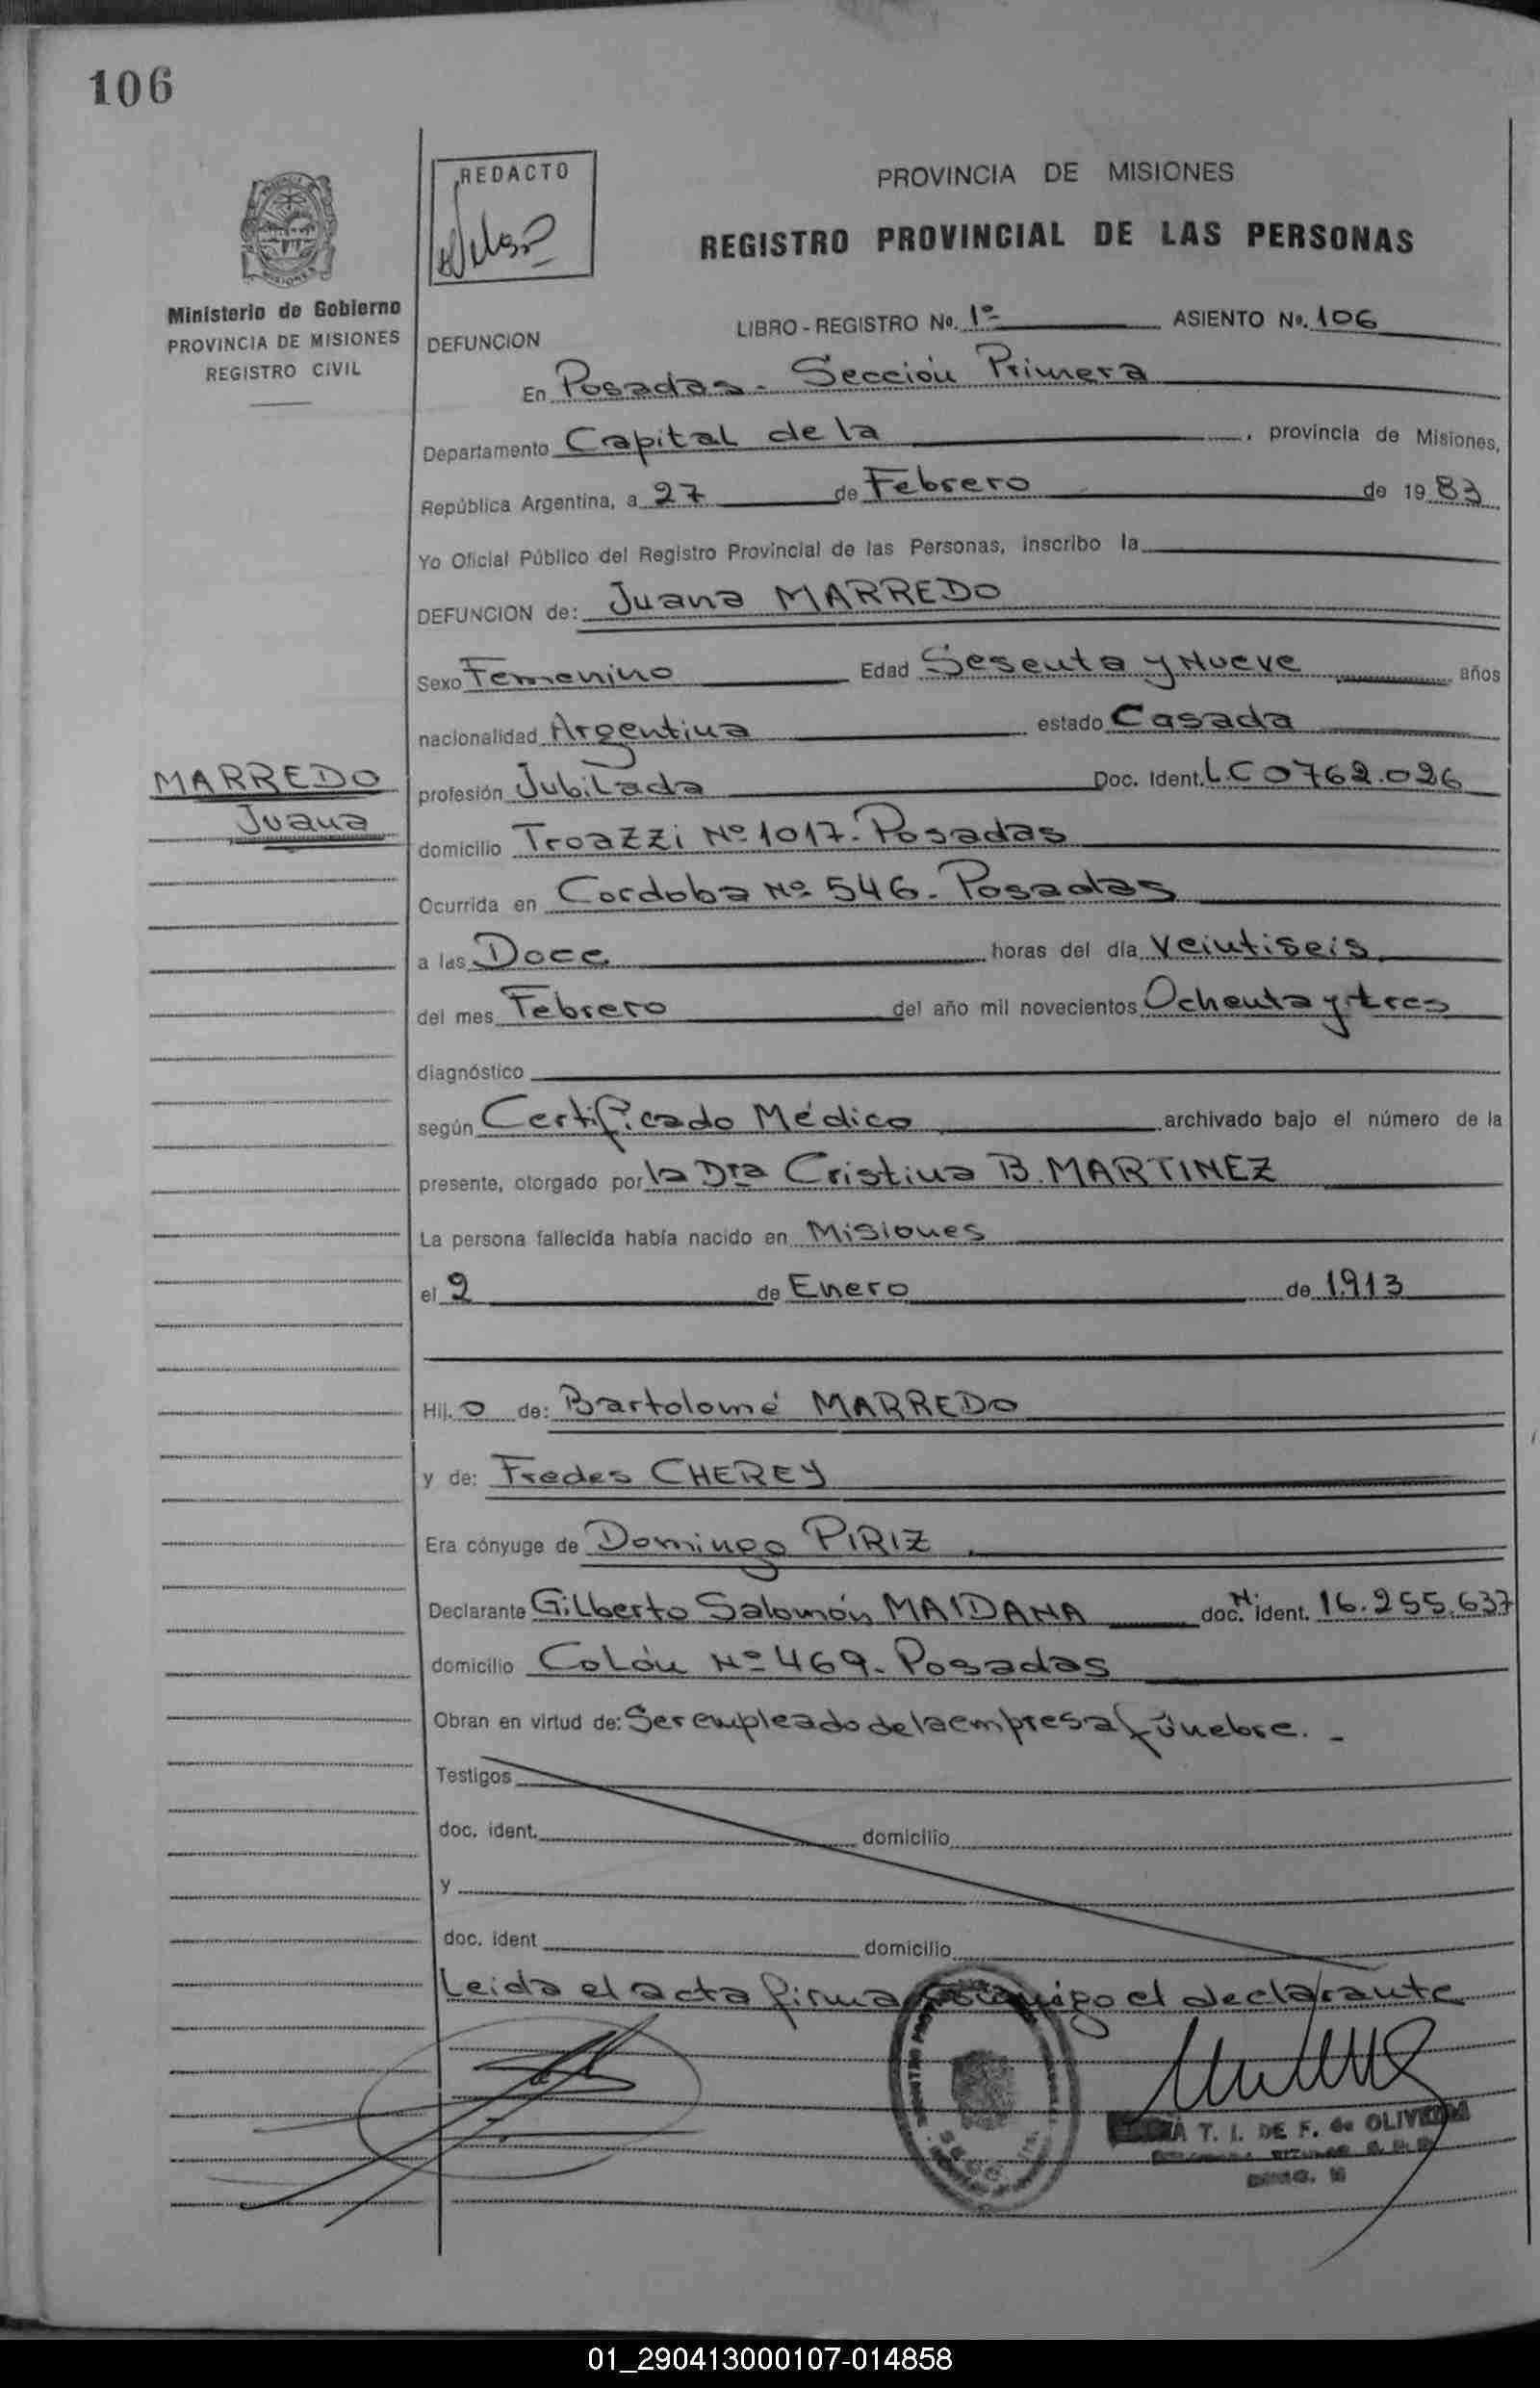 106
REDACTO
PROVINCIA DE MISIONES
REGISTRO PROVINCIAL DE LAS PERSONAS
Ministerio de Gobierno
PROVINCIA DE MISIONES
REGISTRO CIVIL
LIBRO - REGISTRO No. 1º ASIENTO No. 106
DEFUNCION
En Posadas - Sección Primera
Departamento Capital de la , provincia de Misiones,
República Argentina, a 27 de Febrero de 1983
Yo Oficial Público del Registro Provincial de las Personas, inscribo la
DEFUNCION de: Juana MARREDO
Sexo Femenino Edad Sesenta y Nueve años
nacionalidad Argentina estado Casada
MARREDO
Juana
profesión Jubilada Doc. Ident. L.C 0762.026
domicilio Troazzi Nº 1017. Posadas
Ocurrida en Cordoba Nº 546. Posadas
a las Doce horas del día veintiseis
del mes Febrero del año mil novecientos Ochenta y tres
diagnóstico
según Certificado Médico archivado bajo el número de la
presente, otorgado por la Dra Cristina B. MARTINEZ
La persona fallecida había nacido en Misiones
el 2 de Enero de 1.913
Hij. o de: Bartolomé MARREDO
y de: Fredes CHEREY
Era cónyuge de Domingo PIRIZ
Declarante Gilberto Salomón MAIDANA doc. N ident. 16.255.637
domicilio Colón Nº 469. Posadas
Obran en virtud de: Ser empleado de la empresa fúnebre. -
Testigos
doc. ident. domicilio
y
doc. ident domicilio
Leida el acta firma conmigo el declarante
T. I. DE F. de OLIVEIRA
01_290413000107-014858